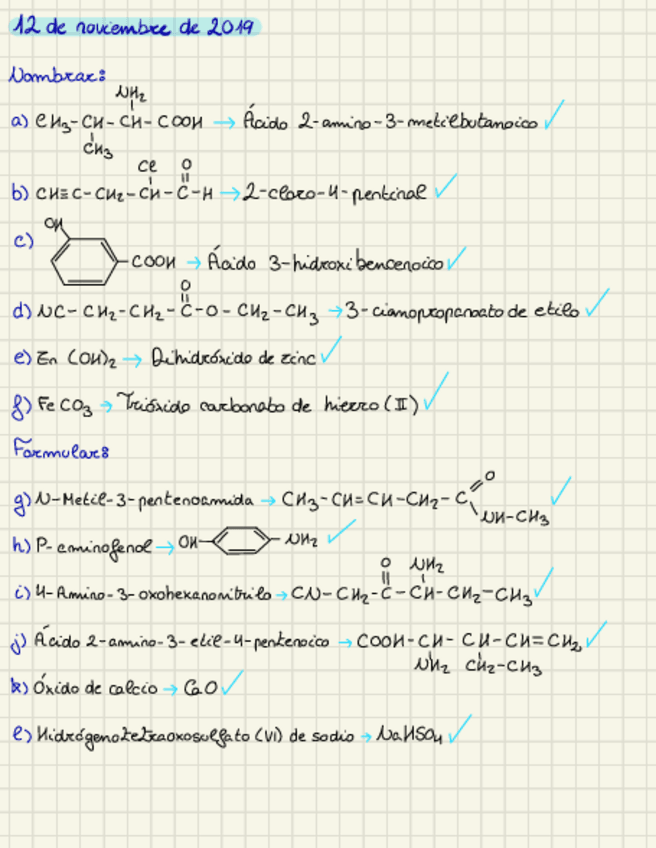 12 de noviembre de 2019
Nombrar:
NH₂
a) CH₃-CH-CH-COOH → Ácido 2-amino-3-metilbutanoico ✓
CH₃
Cl O
b) CH≡C-CH₂-CH-C-H → 2-cloro-4-pentinal ✓
OH
c) -COOH → Ácido 3-hidroxibencenoico ✓
O
d) NC-CH₂-CH₂-C-O-CH₂-CH₃ → 3-cianopropanoato de etilo ✓
e) Zn(OH)₂ → Dihidróxido de zinc ✓
f) FeCO₃ → Trióxido carbonato de hierro (II) ✓
Formular:
O
g) N-Metil-3-pentenoamida → CH₃-CH=CH-CH₂-C ✓
NH-CH₃
h) P-aminofenol → OH- -NH₂ ✓
O NH₂
i) 4-Amino-3-oxohexanonitrilo → CN-CH₂-C-CH-CH₂-CH₃ ✓
j) Ácido 2-amino-3-etil-4-pentenoico → COOH-CH-CH-CH=CH₂ ✓
NH₂ CH₂-CH₃
k) Óxido de calcio → CaO ✓
l) Hidrógenotetraoxosulfato (VI) de sodio → NaHSO₄ ✓